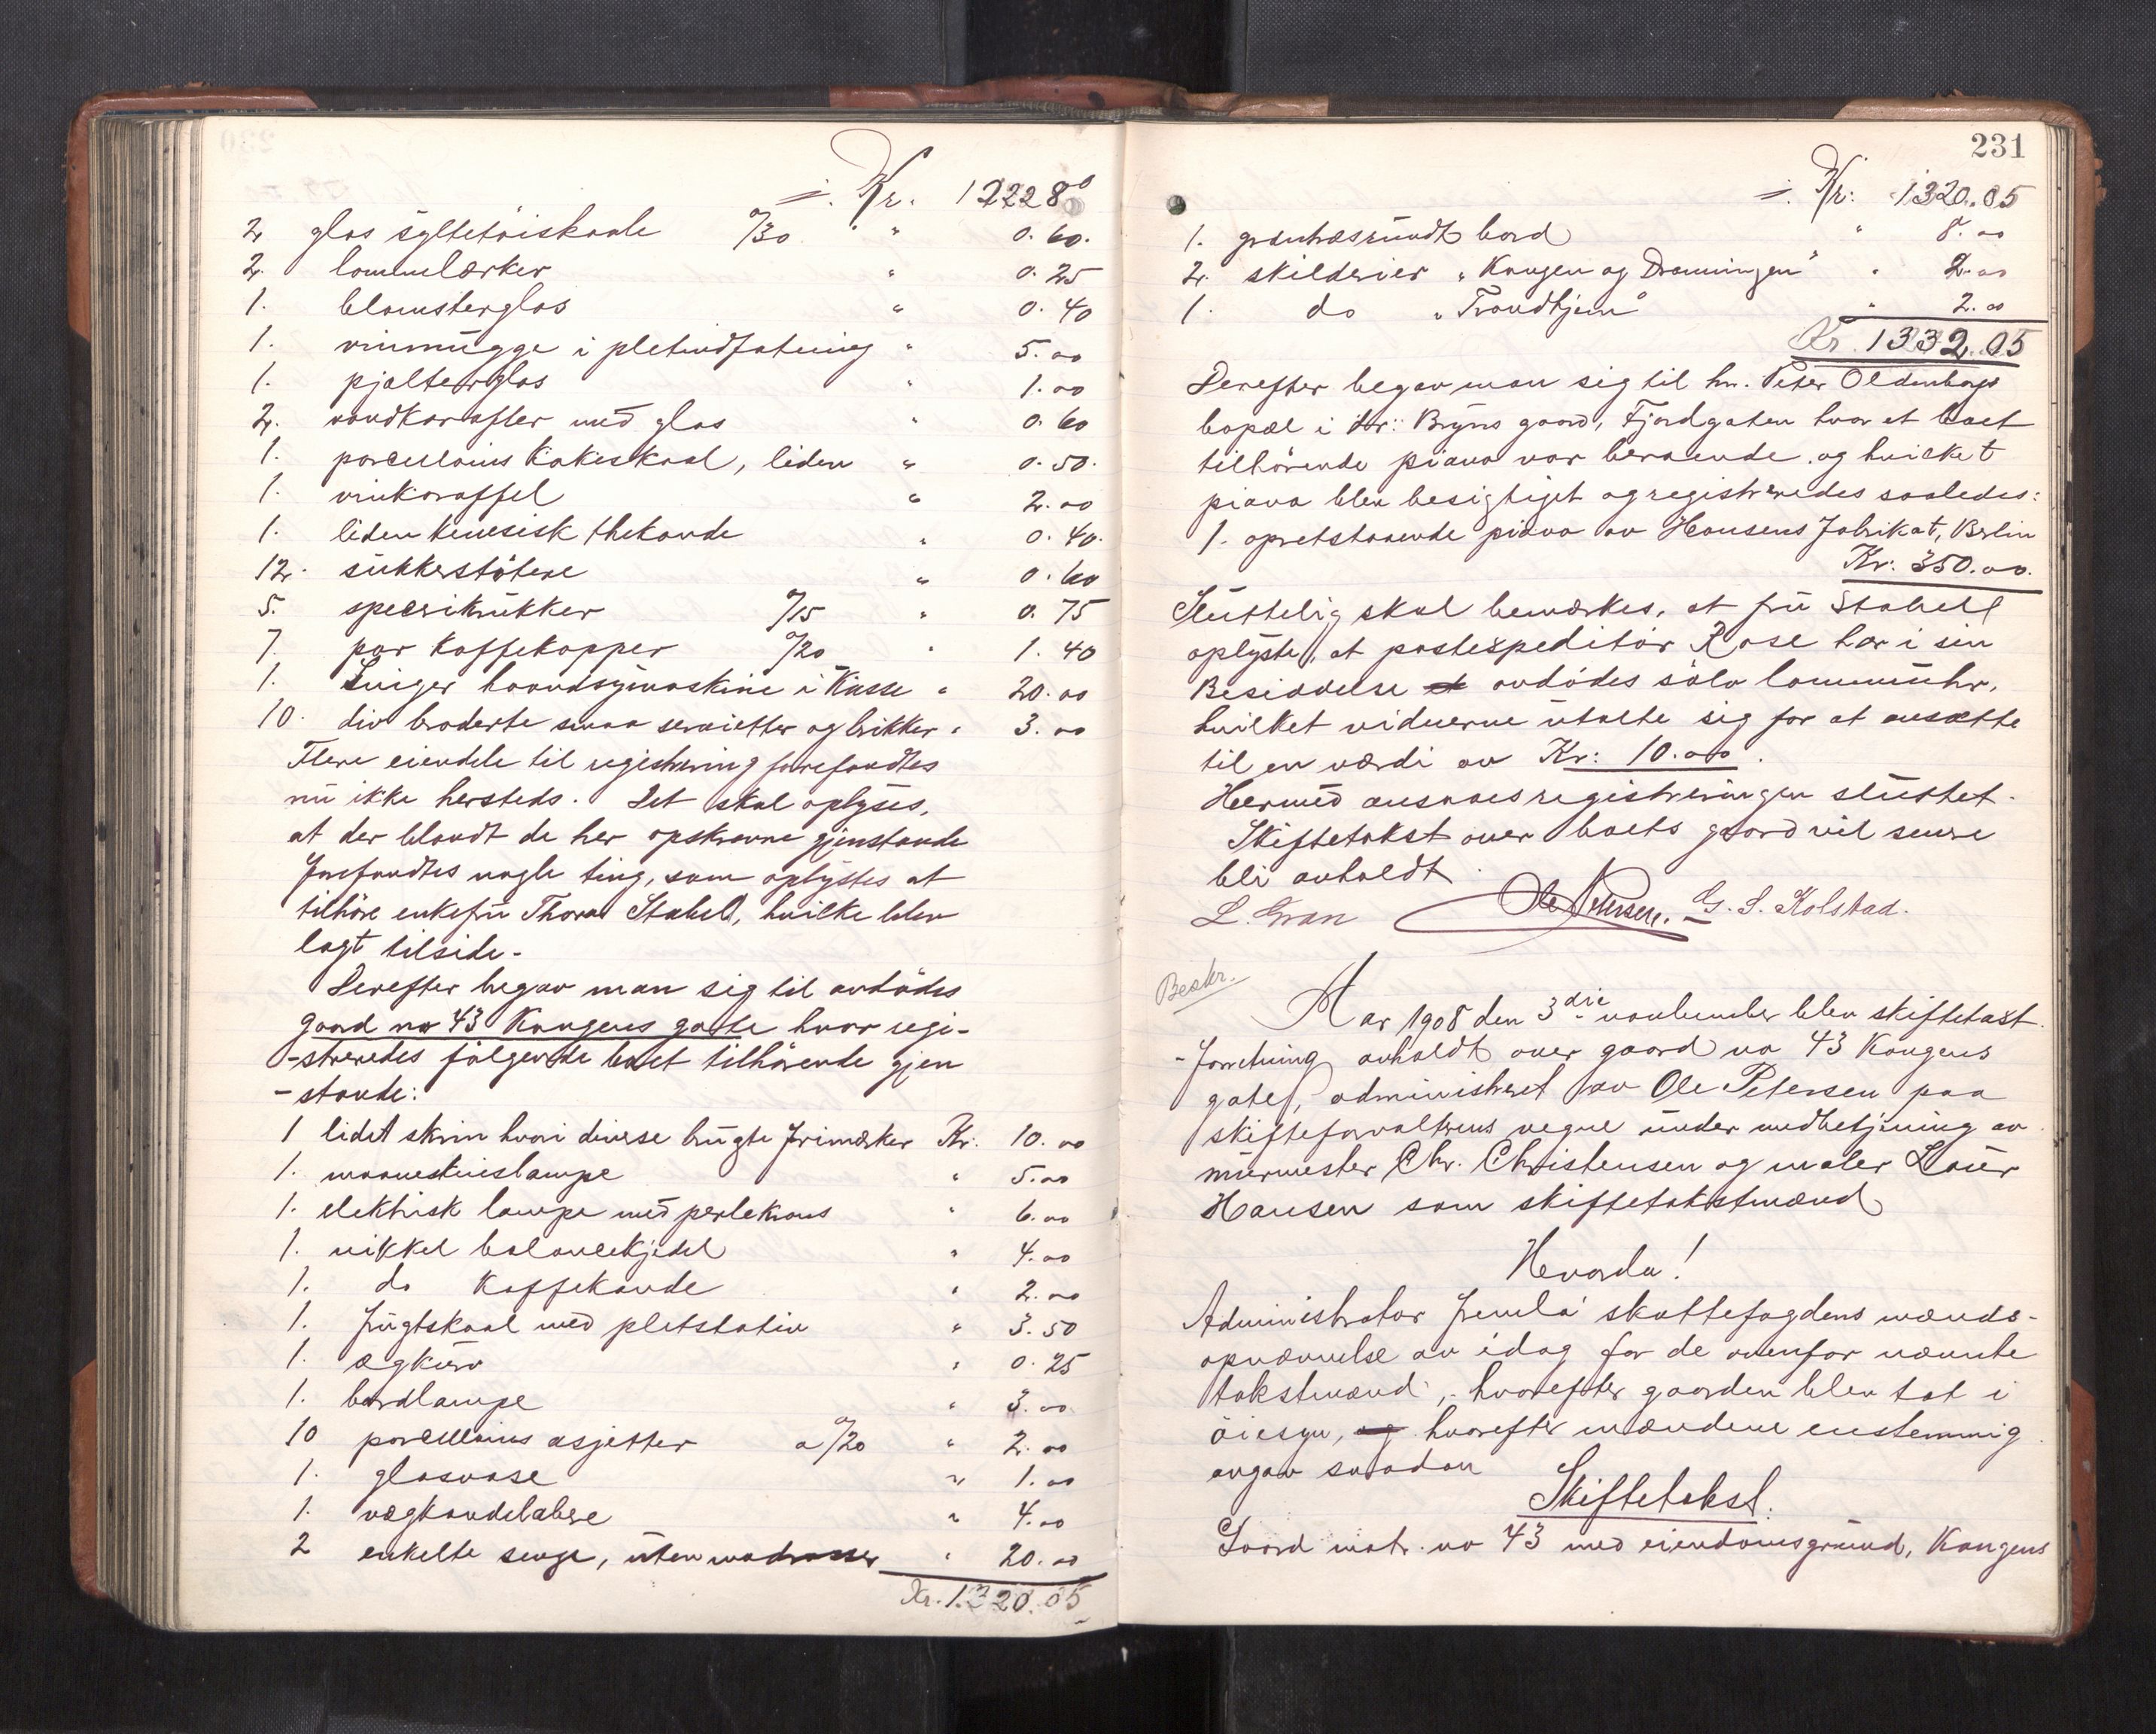 ÷. Kr. 1222 80
2 glas syltetøiskaale a/30 " " 0.60.
2. lommelærker " 0.25
1. blomsterglas " 0.40
1. vinmugge i pletindfatning " 5.00
1. pjolterglas " 1.00
2. vandkarafler med glas " 0.60
1. porcellains kakeskaal, liden " 0.50.
1. vinkaraffel " 2.00
1. liden kinesisk thekande " 0.40.
12. sukkerstötere " 0.60
5. specerikrukker a/15 " 0.75
7. par kaffekopper a/20 " 1.40
1. Singer haandsymaskine i Kasse " 20.00
10. div broderte smaa servietter og brikker " 3.00
Flere eiendele til registrering forefandtes
nu ikke hersteds. Det skal oplyses,
at der blandt de her opskrevne gjenstande
forefandtes nogle ting, som oplystes at
tilhöre enkefru Thora Stabell, hvilke blev
lagt tilside.
Derefter begav man sig til avdödes
gaard no 43 Kongens gate hvor regi-
-streredes fölgende boet tilhörende gjen
-stande:
1 lidet skrin hvori diverse brugte frimærker Kr. 10.00
1. maaneskinslampe " 5.00
1. elektrisk lampe med perlekrans " 6.00
1. nikkel balancekjedel " 4.00
1. do kaffekande " 2.00
1. frugtskaal med pletstativ " 3.50
1. ægkurv " 0.25
1. bordlampe " 3.00
10 porcellains asjetter a/20 " 2.00
1. glasvase " 1.00
1. vægkandelabre " 4.00
2 enkelte senge, uten madrasser " 20.00
Kr. 1.320.05
231
÷. Kr: 1320.05
1. rundt bord " 8.00
2. skilderier "Kongen og Dronningen" " 2.00
1. do "Trondhjem" " 2.00
Kr. 1332.05
Derefter begav man sig til hr. Peter Oldenborgs
bopæl i dr: Bryns gaard, Fjordgaten hvor et boet
tilhörende piano var beroende og hvilket
piano blev besigtiget og registreredes saaledes:
1. opretstaaende piano av Hansens Fabrikat, Berlin
Kr: 350.00.
Sluttelig skal bemærkes, at fru Stabell
oplyste, at postexpeditör Rose har i sin
Besiddelse avdödes sölv lommeuhr,
hvilket vidnerne utalte sig for at ansætte
til en værdi av Kr: 10.00.
Hermed ansaaes registreringen sluttet.
Skiftetakst over boets gaard vil senere
bli avholdt.
L. Gran Ole Petersen. G. S. Kolstad.
Beskr.
Aar 1908 den 3die november blev skiftetaxt
-forretning avholdt over gaard no 43 Kongens
gate, administreret av Ole Petersen paa
skifteforvalterens vegne under medbetjening av
murmester Chr. Christensen og maler Laur
Hansen som skiftetakstmænd
Hvorda!
Administrator fremla' skattefogdens mænds-
opnævnelse av idag for de ovenfor nævnte
takstmænd, hvorefter gaarden blev tat i
öiesyn, og hvorefter mændene enstemmig
avgav saadan
Skiftetakst.
Gaard matr. no 43 med eiendomsgrund, Kongens